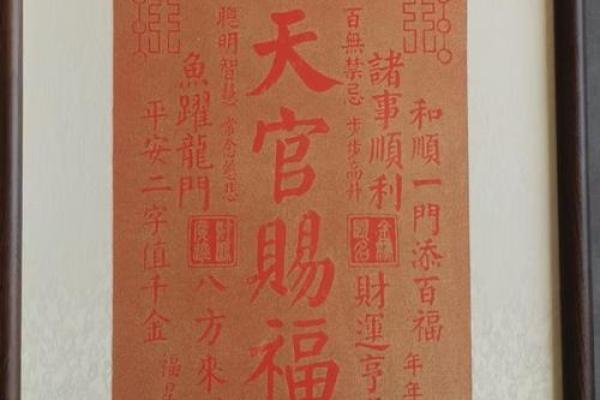 和順一門添百福
年年
諸事順利
財運亨
百無禁忌
步步高升
天官賜福
聰明智慧
常念慈悲
魚躍龍門
八方來
平安二字值千金
福星